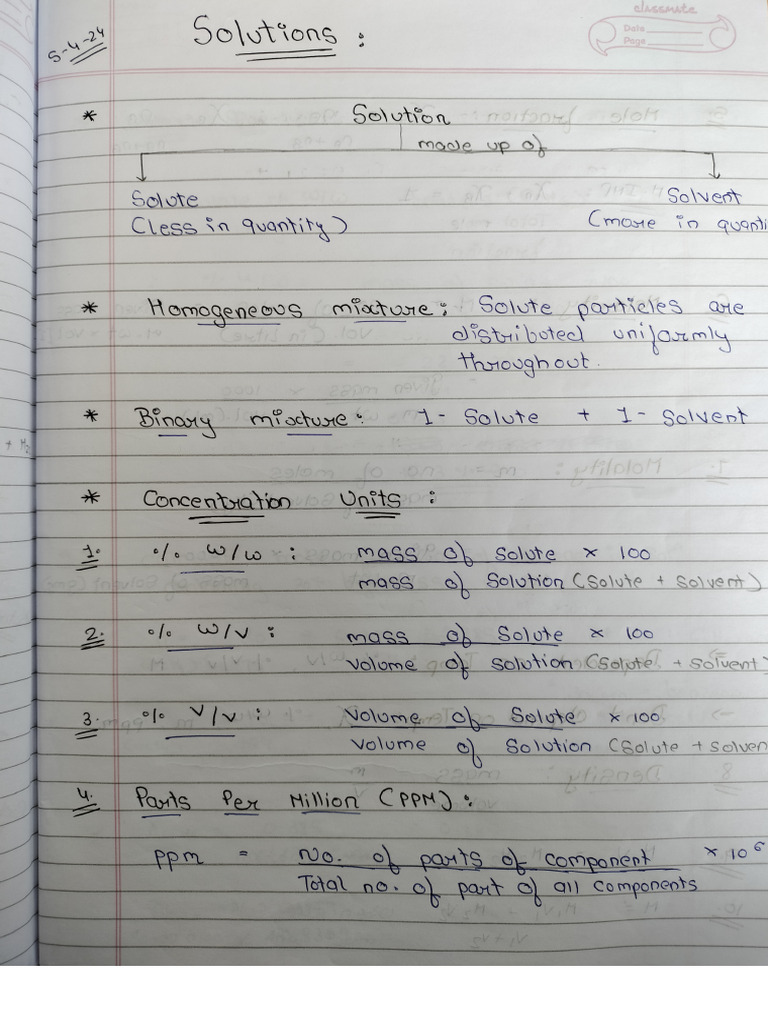 classmate
Date
Page
5-4-24
Solutions :
* Solution
made up of
Solute Solvent
(less in quantity) (more in quanti
* Homogeneous mixture: Solute particles are
distributed uniformly
throughout.
* Binary mixture: 1- Solute + 1- Solvent
* Concentration Units :
1. % w/w : mass of Solute × 100
mass of Solution (Solute + Solvent)
2. % w/v : mass of Solute × 100
volume of solution (Solute + solvent)
3. % v/v : Volume of Solute × 100
volume of Solution (Solute + solven
4. Parts Per Million (PPM) :
ppm = No. of parts of component × 10⁶
Total no. of part of all components